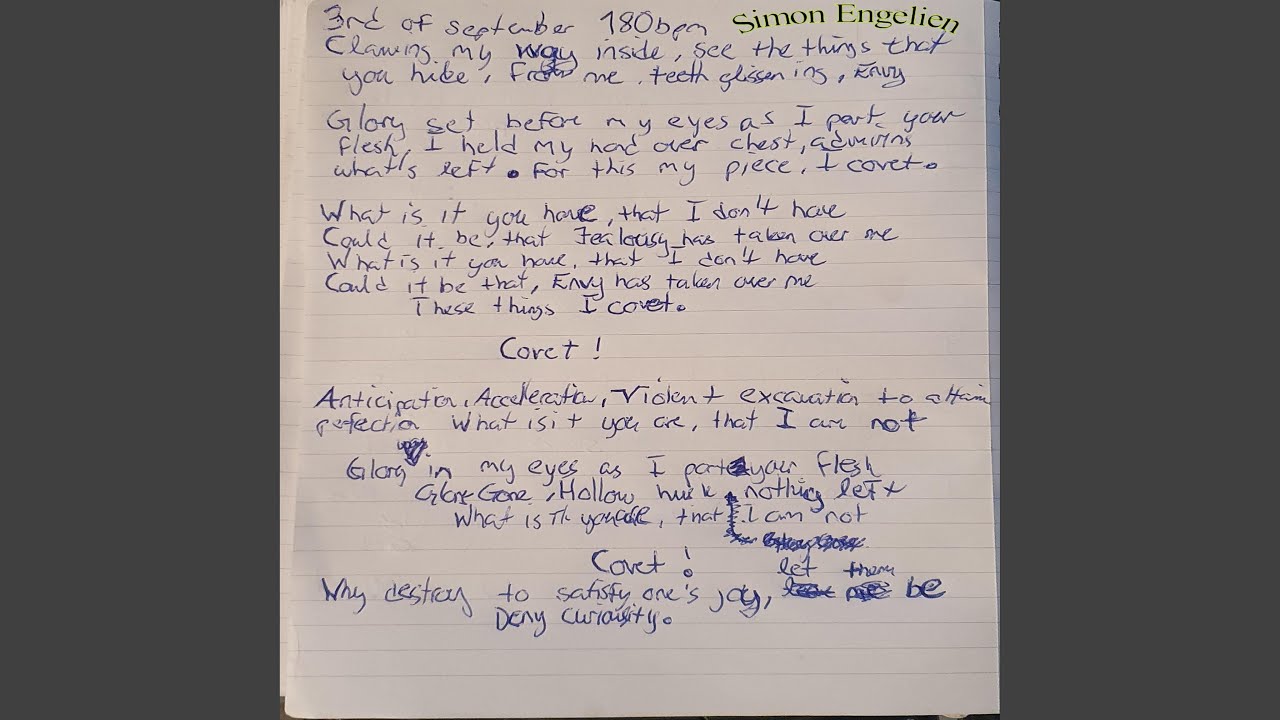 3rd of september 180bpm
Simon Engelien
Clawing my way inside, see the things that
you hide, From me, teeth glissening, Envy
Glory set before my eyes as I part your
flesh, I held my hand over chest, admiring
what's left. For this my piece, I covet.
What is it you have, that I don't have
Could it be, that Jealousy has taken over me
What is it you have, that I don't have
Could it be that, Envy has taken over me
These things I covet.
Covet!
Anticipation, Acceleration, Violent excavation to attain
perfection What is it you are, that I am not
Glory in my eyes as I part your flesh
Gone, Hollow husk nothing left
What is it you are, that I am not
Covet!
let them
Why destroy to satisfy one's joy, be
Deny curiousity.